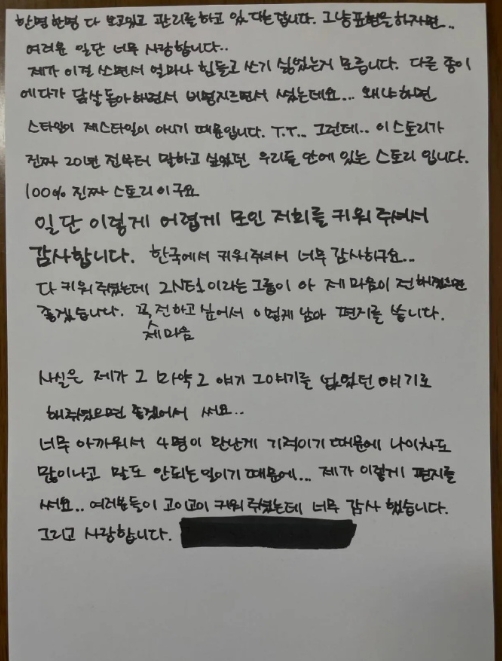 한명한명 다 보고있고 관리를하고 있대는겁니다. 그냥표현을 하자면...
여러분 일단 너무 사랑합니다..
제가 이걸 쓰면서 얼마나 힘들고 쓰기 싫었는지 모릅니다. 다른 종이
에다가 닭살 돋아해면서 비명지르면서 썼는데요... 왜냐하면
스타일이 제스타일이 아니기 때문입니다. T.T... 그런데.. 이스토리가
진짜 20년 전부터 말하고 싶었던 우리들 안에 있는 스토리 입니다.
100% 진짜 스토리이구요
일단 이렇게 어렵게 모인 저희를 키워주셔서
감사합니다. 한국에서 키워주셔서 너무 감사하구요...
다 키워주셨는데 2NE1 이라는 그룹이 아 제 마음이 전해졌으면
좋겠습니다. 꼭 전하고 싶어서 이렇게 남아 편지를 씁니다.
제마음
사실은 제가 그 마약 그 얘기 그얘기를 없었던 얘기로
해주셨으면 좋겠어서 써요..
너무 아까워서 4명이 만난게 기적이기 때문에 나이차도
많이나고 말도 안되는일이기 때문에... 제가 이렇게 편지를
써요.. 여러분들이 고이고이 키워주셨는데 너무 감사 했습니다.
그리고 사랑합니다.